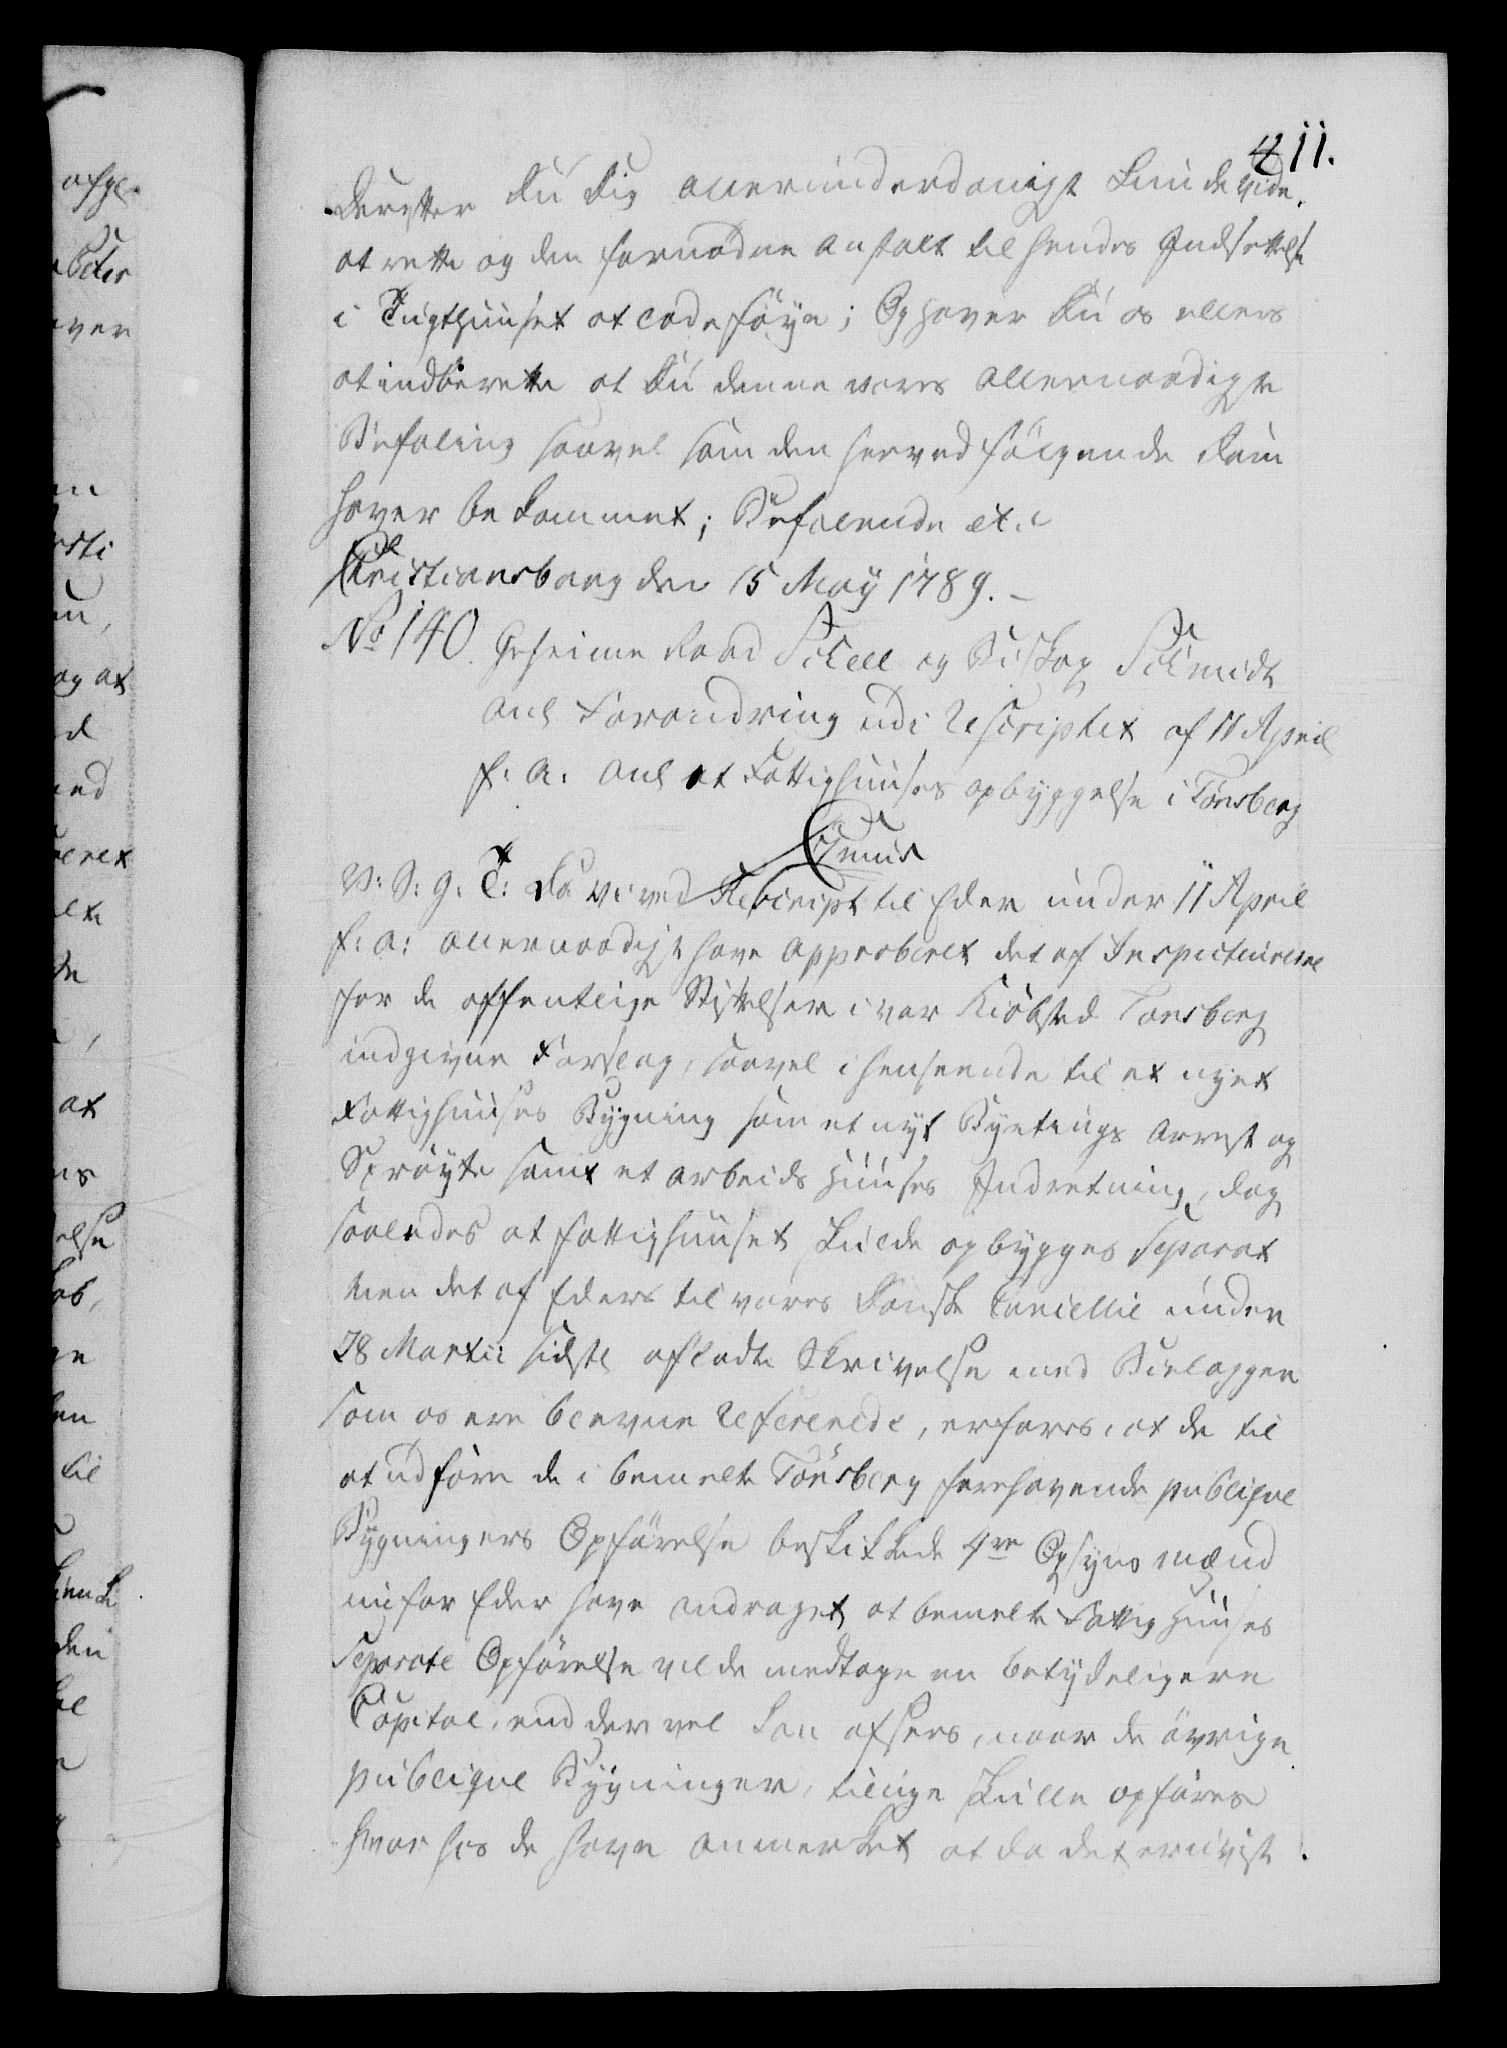 411.
Derefter Du Dig allerunderdanigst kunde vide
at rette og den fornødne Anstalt til hendes Indsættelse
i Tugthuuset at lade føye; Og haver Du os ellers
at indberette at Du denne vores allernaadigste
Befaling saavel som den herved følgende Dom
haver bekommet; Befalende etc
Christiansborg den 15 May 1789. -
No 140. Geheime Raad Scheel og Biskop Schmidt
anl Forandring udi Rescriptet af 11 April
f: a: anl et Fattighuuses opbyggelse i Tønsberg
V: S: G: T: Da vi ved Rescript til Eder under 11 April
f: a: allernaadigst have approberet det af Inspecteurerne
for de offentlige Stiftelser i vor Kiøbsted Tønsberg
indgivne Forslag, saavel i henseende til et nyet
Fattighuuses Bygning som et nyt Bytings Arrest og
Sprøyte samt et Arbeids Huuses Indretning, dog
saaledes at Fattighuuset skulde opbygges separat
Men det af Eders til vores Danske Cancellie under
28 Martii sidste afladte Skrivelse med Bielagger
som os ere blevne refererede, erfares, at de til
at udføre de i bemelte Tønsberg forehavende publique
Bygningers Opførelse beskikkede 4re Opsyns mænd
nu for Eder have andraget, at bemelte Fattig Huuses
separate Opførelse vilde medtage en betydeligere
Capital, end der vel kan afsees, naar de øvrige
publique Bygninger, tillige skulle opføres
hvor hos de have anmerket at da det er uvist